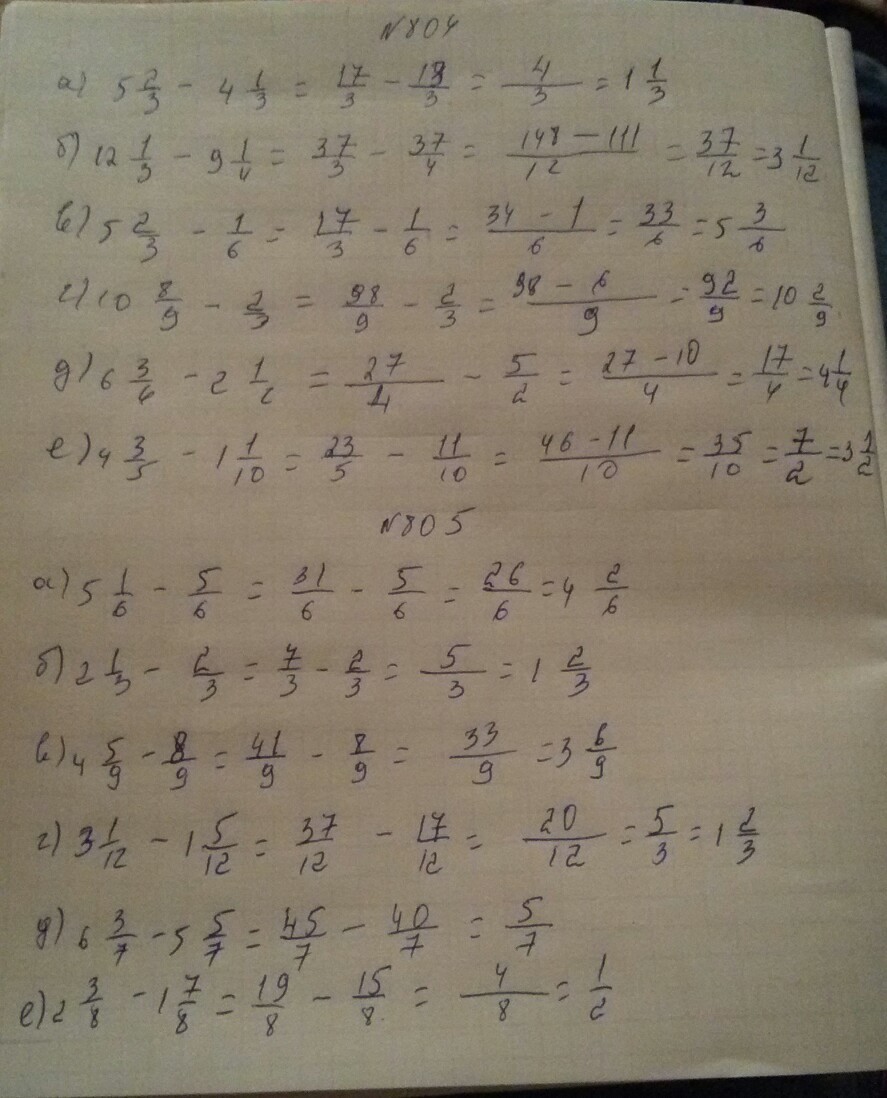 №804
а) 5 2/3 - 4 1/3 = 17/3 - 13/3 = 4/3 = 1 1/3
б) 12 1/3 - 9 1/4 = 37/3 - 37/4 = (148 - 111)/12 = 37/12 = 3 1/12
в) 5 2/3 - 1/6 = 17/3 - 1/6 = (34 - 1)/6 = 33/6 = 5 3/6
г) 10 8/9 - 2/3 = 98/9 - 2/3 = (98 - 6)/9 = 92/9 = 10 2/9
д) 6 3/4 - 2 1/2 = 27/4 - 5/2 = (27 - 10)/4 = 17/4 = 4 1/4
е) 4 3/5 - 1 1/10 = 23/5 - 11/10 = (46 - 11)/10 = 35/10 = 7/2 = 3 1/2
№805
а) 5 1/6 - 5/6 = 31/6 - 5/6 = 26/6 = 4 2/6
б) 2 1/3 - 2/3 = 7/3 - 2/3 = 5/3 = 1 2/3
в) 4 5/9 - 8/9 = 41/9 - 8/9 = 33/9 = 3 6/9
г) 3 1/12 - 1 5/12 = 37/12 - 17/12 = 20/12 = 5/3 = 1 2/3
д) 6 3/7 - 5 5/7 = 45/7 - 40/7 = 5/7
е) 2 3/8 - 1 7/8 = 19/8 - 15/8 = 4/8 = 1/2